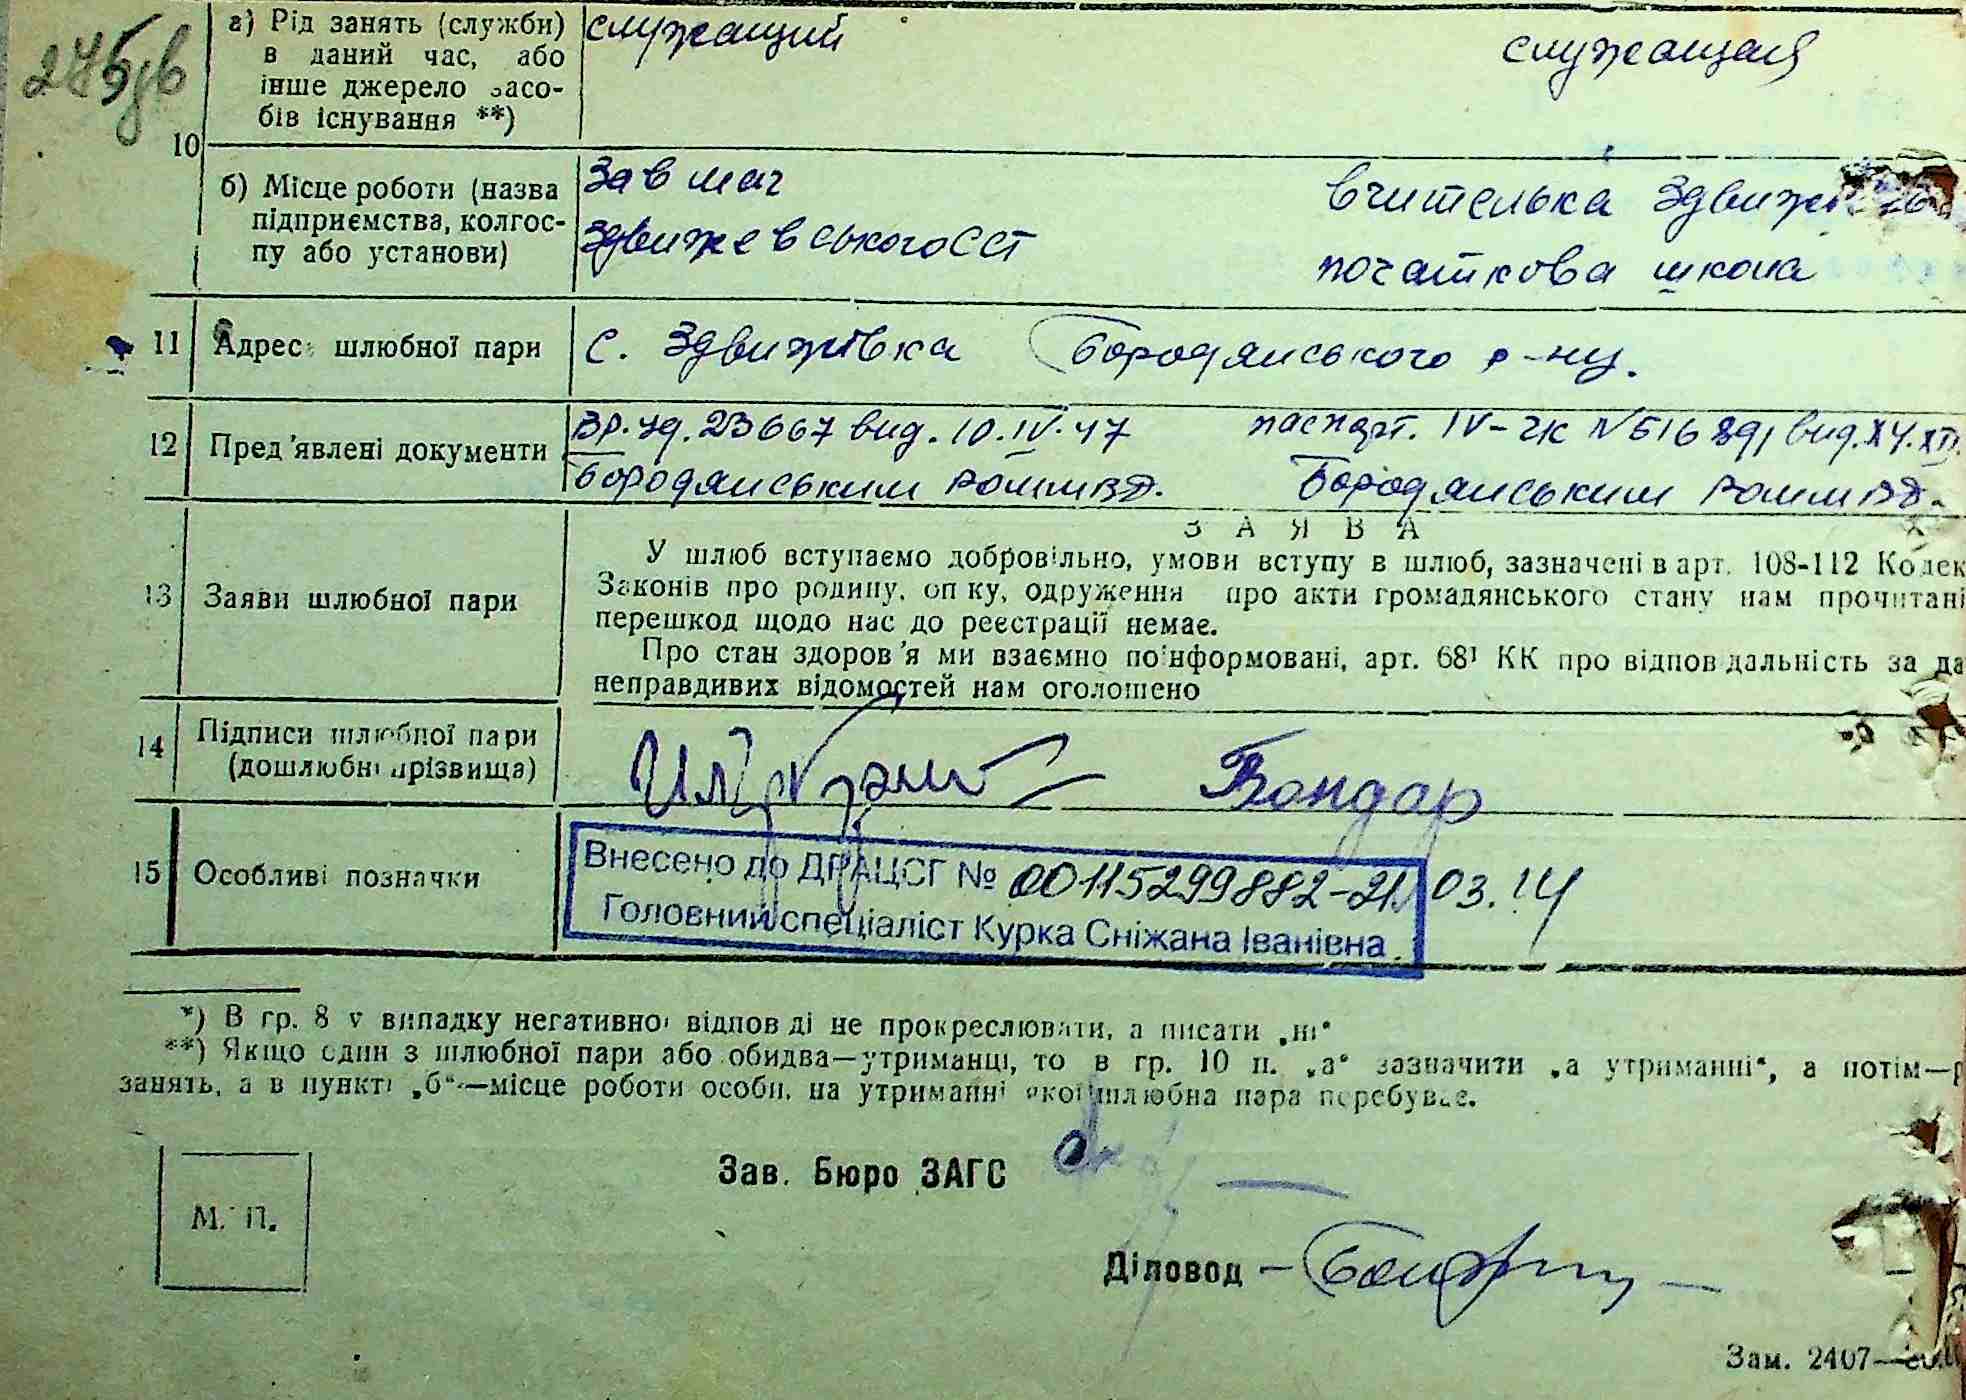 275зв
а) Рід занять (служби) в даний час, або інше джерело засобів існування **)
служащий
служащая
10
б) Місце роботи (назва підприємства, колгоспу або установи)
Зав маг
Здвижевського ССТ
вчителька Здвиж
початкова школа
11 Адрес шлюбної пари
с. Здвижівка Бородянського р-ну.
12 Пред'явлені документи
Вр. уд. 23667 вид. 10.IV.47
Бородянським РОММВД.
паспорт. IV-ЧК вид.
Бородянським РОММВД.
13 Заяви шлюбної пари
ЗАЯВА
У шлюб вступаємо добровільно, умови вступу в шлюб, зазначені в арт. 108-112 Кодек
Законів про родину, опіку, одруження про акти громадянського стану нам прочитані
перешкод щодо нас до реєстрації немає.
Про стан здоров'я ми взаємно поінформовані, арт. 68¹ КК про відповідальність за да
неправдивих відомостей нам оголошено
14 Підписи шлюбної пари
(дошлюбні прізвища)
Бондар
15 Особливі позначки
Внесено до ДРАЦСГ № 00115299882-21. 03. 14
Головний спеціаліст Курка Сніжана Іванівна.
*) В гр. 8 у випадку негативної відповіді не прокреслювати, а писати „ні“
**) Якщо один з шлюбної пари або обидва—утриманці, то в гр. 10 п. „а“ зазначити „а утриманні“, а потім—р
занять, а в пункті „б“—місце роботи особи, на утриманні якої шлюбна пара перебуває.
М. П.
Зав. Бюро ЗАГС
Діловод —
Зам. 2407—